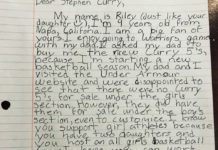 Dear Stephen Curry,
My name is Riley (just like your
daughter), I'm 9 years old from
Napa, California. I am a big fan of
yours. I enjoy going to Warriors games
with my dad. I asked my dad to
buy me the new Curry 5's,
because I'm starting a new
basketball season. My dad and I
visited the Under Armour
website and were disappointed to
see that there were no Curry
5's for sale under the girls
section. However, they did have
them for sale under the boy's
section, even to customize. I know
you support girl athletes because
you have two daughters and
you host an all girls basketball